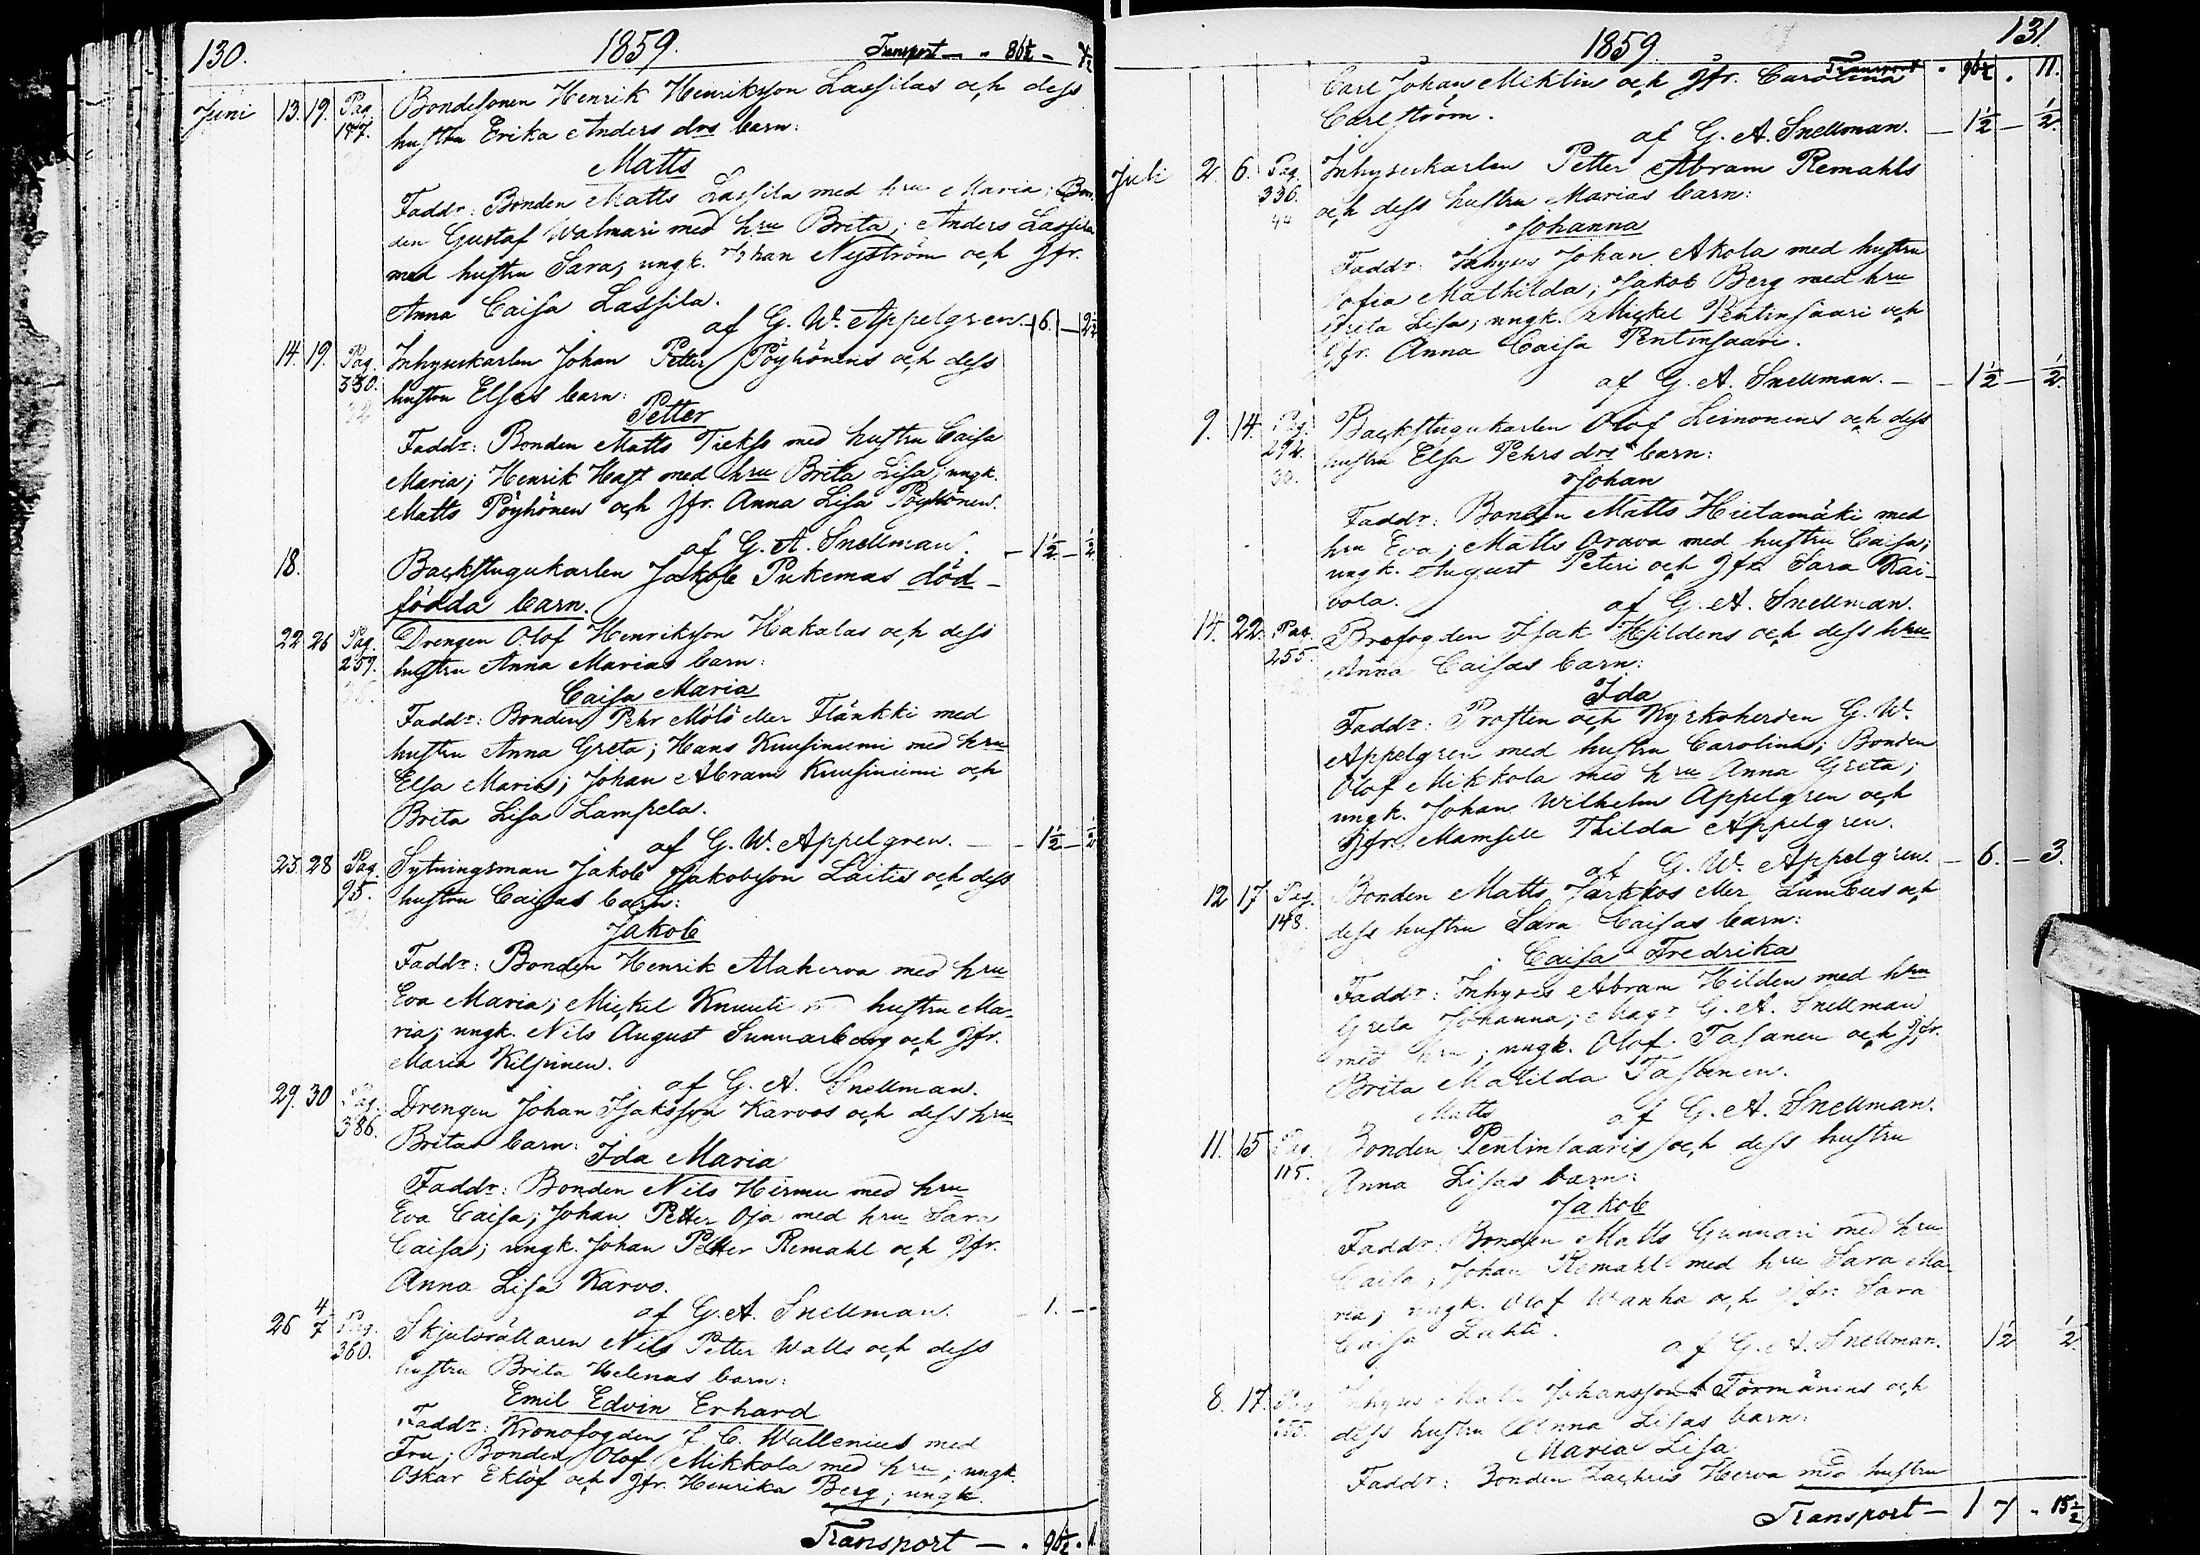 130.
1859.
Transport — " 86½ — ½
Juni 13. 19. Pag. 187. Bondesonen Henrik Henriksson Lassilas och dess
hustru Erika Anders drs barn:
Matts
Faddr: Bonden Matts Lassila med hru Maria; Bon-
den Gustaf Walmari med hru Brita; Anders Lassila
med hustru Sara; ungk. Johan Nyström och Jfr.
Anna Caisa Lassila.
af G. W. Appelgren. — 6. — 2½
14. 19. Pag. 330. Inhysekarlen Johan Petter Pöyhönens och dess
hustru Elsas barn:
Petter
Faddr: Bonden Matts Tiekso med hustru Caisa
Maria; Henrik Hast med hru Brita Lisa; ungk.
Matts Pöyhönen och Jfr. Anna Lisa Pöyhönen.
af G. A. Snellman. — 1½ — ½
18. Backstugukarlen Jakob Pukemas död-
födda barn.
22 26 Pag. 259. Drengen Olof Henriksson Hakalas och dess
hustru Anna Marias barn:
Caisa Maria
Faddr: Bonden Pehr Mölö eller Flänkki med
hustru Anna Greta; Hans Kuusiniemi med hru
Elsa Maria; Johan Abram Kuusiniemi och
Brita Lisa Lampela.
af G. W. Appelgren. — 1½ — ½
23. 28 Pag. 95. Sytningsman Jakob Jakobsson Laitis och dess
hustru Caisas barn:
Jakob
Faddr: Bonden Henrik Alaherva med hru
Eva Maria; Mickel Knuuti hustru Ma-
ria; ungk. Nils August Sunnarborg och Jfr.
Maria Kilpinen.
af G. A. Snellman.
29. 30 Pag. 386. Drengen Johan Isaksson Karvos och dess hru
Britas barn: Ida Maria
Faddr: Bonden Nils Hirmu med hru
Eva Caisa; Johan Petter Oja med hru Sara
Caisa; ungk. Johan Petter Remahl och Jfr.
Anna Lisa Karvo.
af G. A. Snellman. 1. —
26 4/7 Pag. 360. Skjutsrättaren Nils Petter Walls och dess
hustru Brita Helenas barn:
Emil Edvin Erhard
Faddr: Kronofogden J. C. Wallenius med
Fru; Bonden Olof Mikkola med hru; ungk.
Oskar Eklöf och Jfr. Henrika Berg; ungk.
Transport — " 96½ "
131.
1859.
Transport " 96½ " 11.
Carl Johan Meklin och Jfr. Carolina
Carlström.
af G. A. Snellman. — 1½ — ½
Juli 2. 6. Pag. 336. Inhysekarlen Petter Abram Remahls
och dess hustru Marias barn:
Johanna
Faddr: Inhyses Johan Akola med hustru
Sofia Mathilda; Jakob Berg med hru
Greta Lisa; ungk. Mickel Pentinsaari och
Jfr. Anna Caisa Pentinsaari.
af G. A. Snellman. — 1½ — ½
9. 14. Pag. 292. Backstugukarlen Olof Leinonens och dess
hustru Elsa Pehrs drs barn:
Johan
Faddr: Bonden Matts Hietamäki med
hru Eva; Matts Orava med hustru Caisa;
ungk. August Peteri och Jfr. Sara Kai-
vola.
af G. A. Snellman.
14. 22. Pag. 255. Brofogden Isak Hildens och dess hru
Anna Caisas barn:
Ida
Faddr: Prosten och Kyrkoherden G. W.
Appelgren med hustru Carolina; Bonden
Olof Mikkola med hru Anna Greta;
ungk. Johan Wilhelm Appelgren och
Jfr. Mamsell Thilda Appelgren.
af G. W. Appelgren. — 6. — 3.
12 17 Pag. 148. Bonden Matts Jarkkos eller Lumbus och
dess hustru Sara Caisas barn:
Caisa Fredrika
Faddr: Inhyses Abram Hilden med hru
Greta Johanna; Magr G. A. Snellman
med hru; ungk. Olof Tasanen och Jfr.
Brita Matilda Tasanen.
af G. A. Snellman.
Matts
11. 15 Pag. 115. Bonden Pentinsaaris och dess hustru
Anna Lisas barn:
Jakob
Faddr: Bonden Matts Gunnari med hru
Caisa; Johan Remahl med hru Sara Ma-
ria; ungk. Olof Wanha och Jfr. Sara
Caisa Lahti.
af G. A. Snellman. 1½ ½
8. 17. Pag. Inhyses Johansson Törmänens och
dess hustru Anna Lisas barn:
Maria Lisa
Faddr: Bonden Zachris Herva med hustru
Transport — 1 7 " 15½